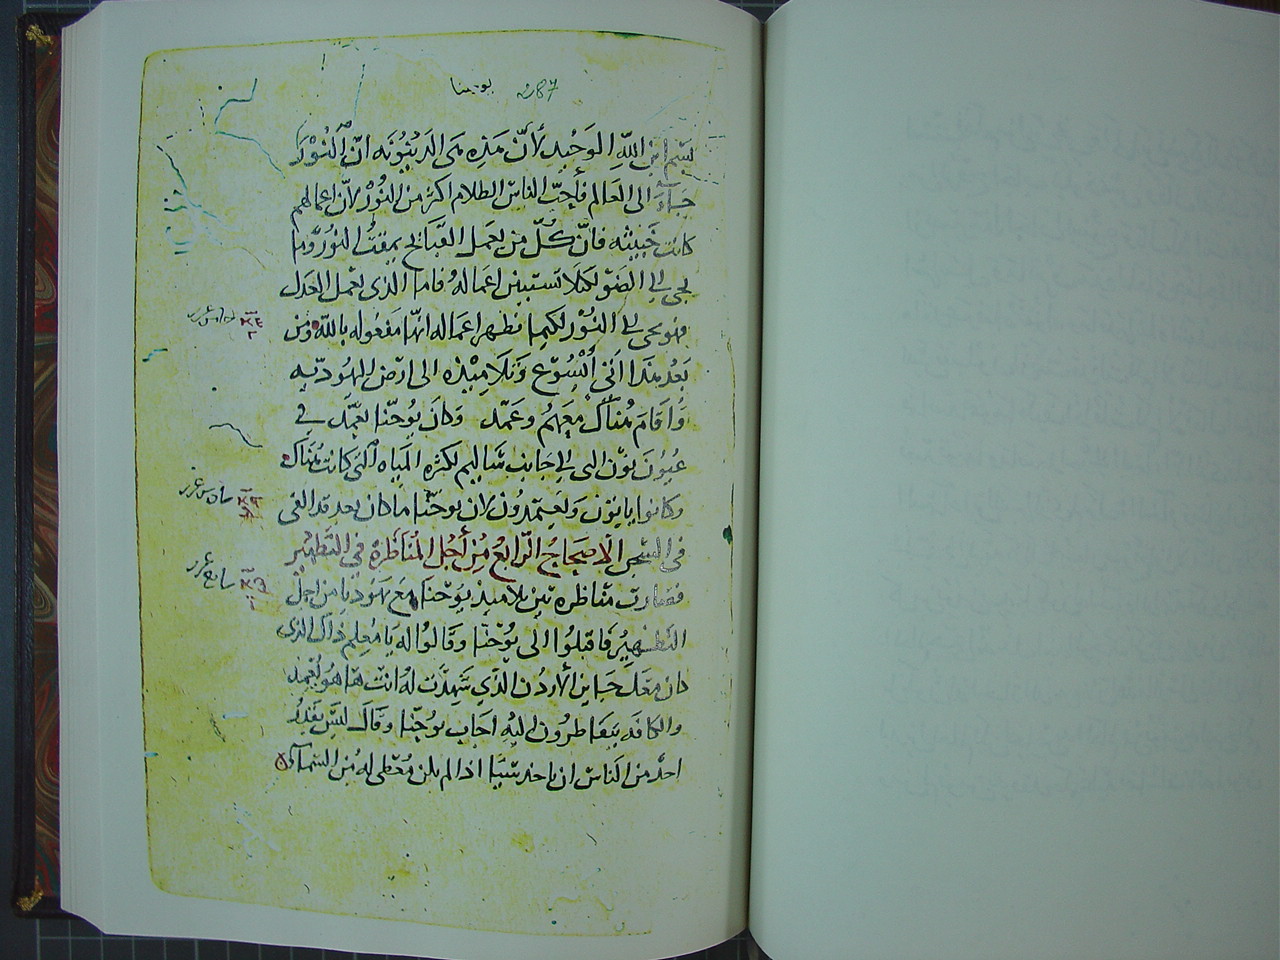 يوحنا 287
بسم ابن الله الوحيد لأن هذه هي الدينونه ان النور
جآء الى العالم فأحب الناس الظلام اكثر من النور لأن اعمالهم
كانت خبيثه فان كل من يعمل القبائح يمقت النور وما
يجي الى الضو لكيلا تستبين اعماله فاما الذى يعمل العدل
فهو يجى الى النور لكيما تظهر اعماله انها مفعوله بالله ومن
بعد هذا اتى ايسوع وتلاميذه الى ارض اليهوديه
واقام هناك معهم وعمد وكان يوحنا يعمد في
عيون نون التى الى جانب ساليم لكثره المياه التى كانت هناك
وكانوا ياتون ويعتمدون لان يوحنا ما كان بعد قد القى
فى السجن الاصحاح الرابع من أجل المناظرة في التطهير
فصارت مناظره بين تلاميذ يوحنا مع يهوديا من اجل
التطهير فاقبلوا الى يوحنا وقالوا له يا معلم ذاك الذى
كان معك جايز الأردن الذي شهدت له انت ها هو يعمد
والكافه يتقاطرون اليه اجاب يوحنا وقال ليس يقدر
احد من الناس ان ياخد شيا اذا لم يكن معطى له من السمآء
خامس عشر
سادس عشر
سابع عشر